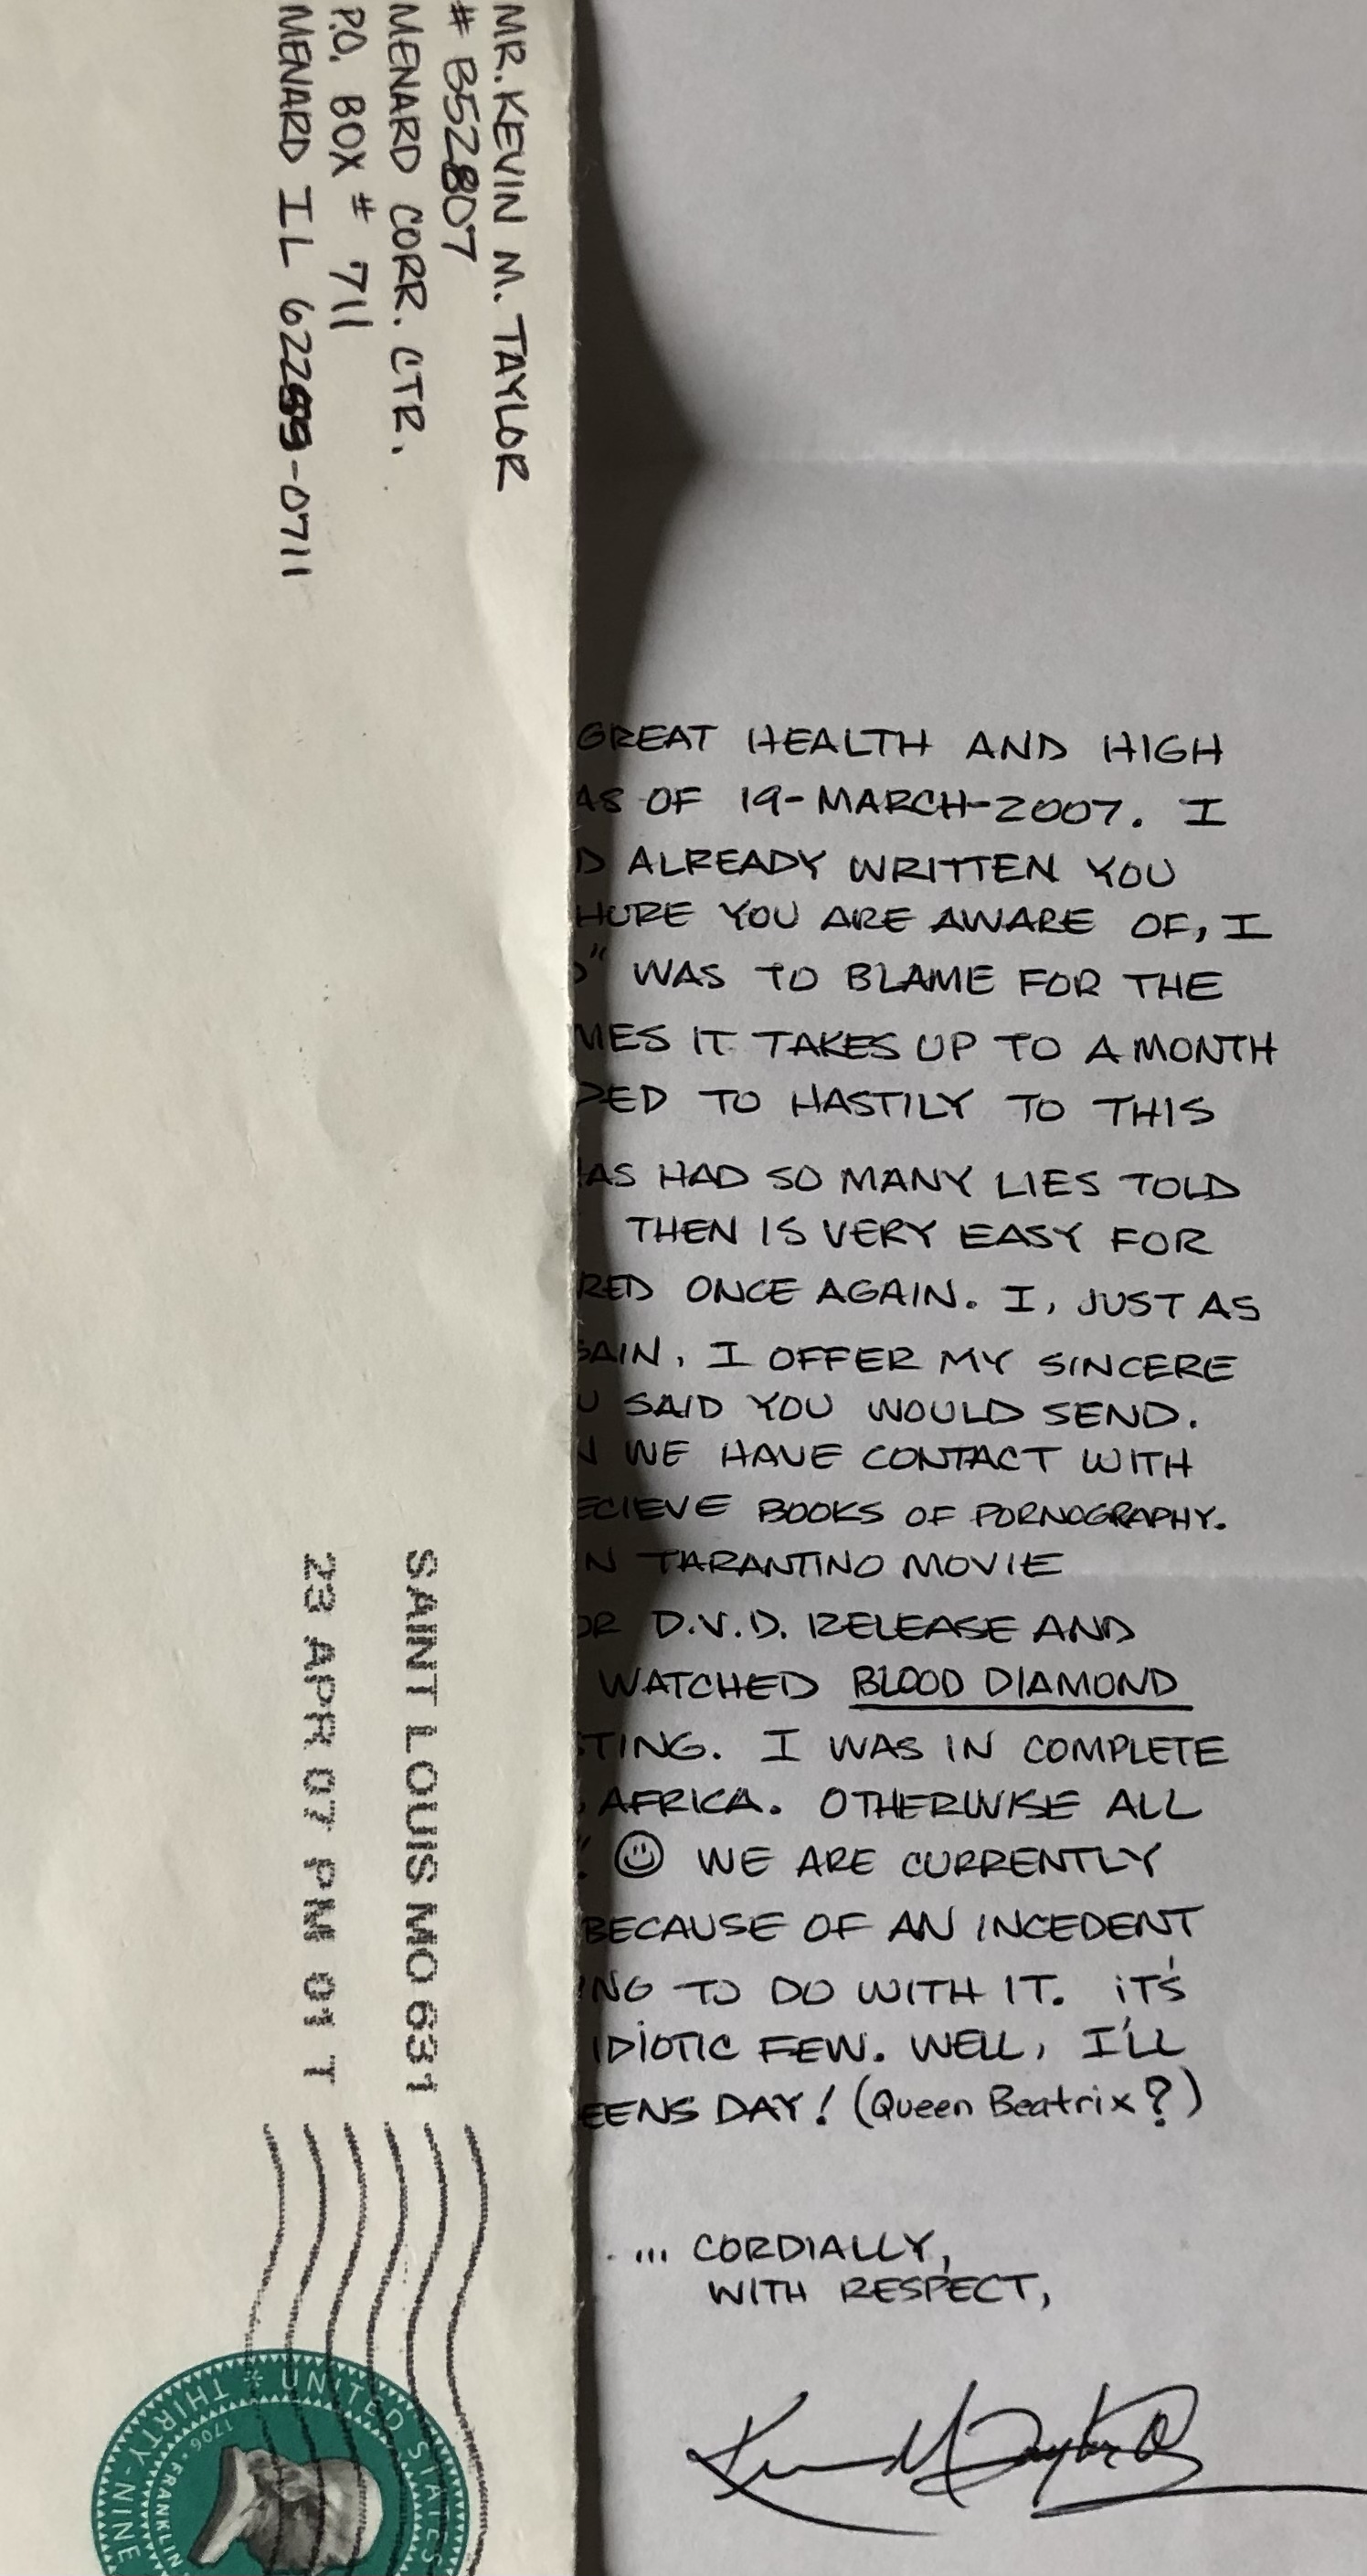 MR. KEVIN M. TAYLOR
# B52807
MENARD CORR. CTR.
P.O. BOX # 711
MENARD IL 62259-0711
SAINT LOUIS MO 631
23 APR 07 PM 01 T
UNITED STATES
THIRTY-NINE
1706 • FRANKLIN
GREAT HEALTH AND HIGH
AS OF 19-MARCH-2007. I
D ALREADY WRITTEN YOU
HURE YOU ARE AWARE OF, I
" WAS TO BLAME FOR THE
MES IT TAKES UP TO A MONTH
PED TO HASTILY TO THIS
HAS HAD SO MANY LIES TOLD
THEN IS VERY EASY FOR
RED ONCE AGAIN. I, JUST AS
GAIN, I OFFER MY SINCERE
U SAID YOU WOULD SEND.
N WE HAVE CONTACT WITH
ECIEVE BOOKS OF PORNOGRAPHY.
N TARANTINO MOVIE
OR D.V.D. RELEASE AND
WATCHED BLOOD DIAMOND
TING. I WAS IN COMPLETE
AFRICA. OTHERWISE ALL
☺ WE ARE CURRENTLY
BECAUSE OF AN INCEDENT
ING TO DO WITH IT. IT'S
IDIOTIC FEW. WELL, I'LL
EENS DAY! (Queen Beatrix?)
... CORDIALLY,
WITH RESPECT,
Kevin M Taylor